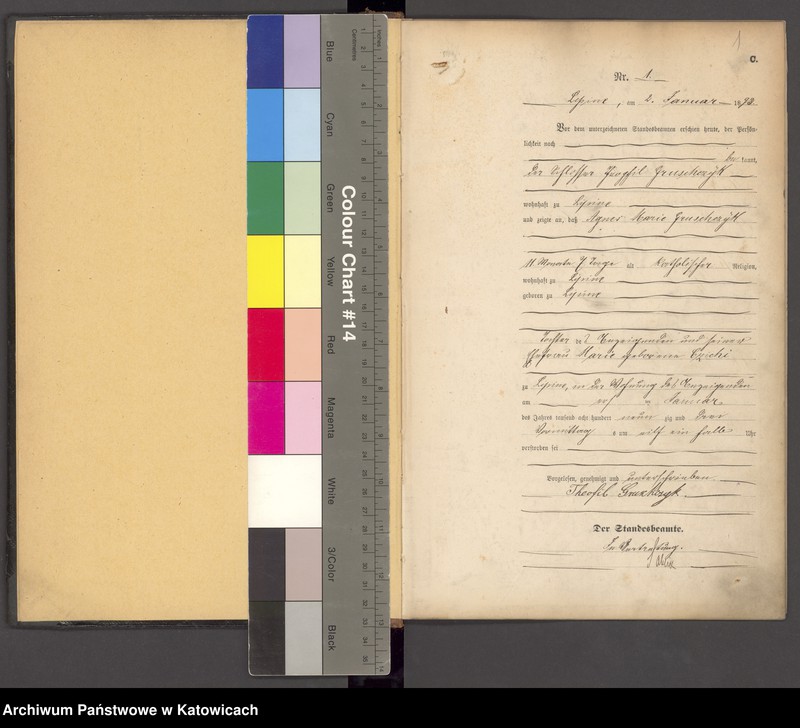 1
C.
Nr. 1.
Lipine, am 2. Januar 1893.
Vor dem unterzeichneten Standesbeamten erschien heute, der Persön-
lichkeit nach
be kannt,
der Schlosser
wohnhaft zu Lipine
und zeigte an, daß Agnes Marie Gruschczyk
11 Monate 7 Tage alt katholischer Religion,
wohnhaft zu Lipine
geboren zu Lipine
Tochter des Anzeigenden und seiner
Ehefrau Marie geborene
zu Lipine, in der Wohnung des Anzeigenden
am Januar
des Jahres tausend acht hundert neun zig und drei
Vormittags um elf ein halb Uhr
verstorben sei
Vorgelesen, genehmigt und unterschrieben
Theofil Gruschczyk
Der Standesbeamte.
In Vertretung.
Blue
Cyan
Green
Yellow
Red
Magenta
White
3/Color
Black
Colour Chart #14
Centimetres
Inches
Archiwum Państwowe w Katowicach